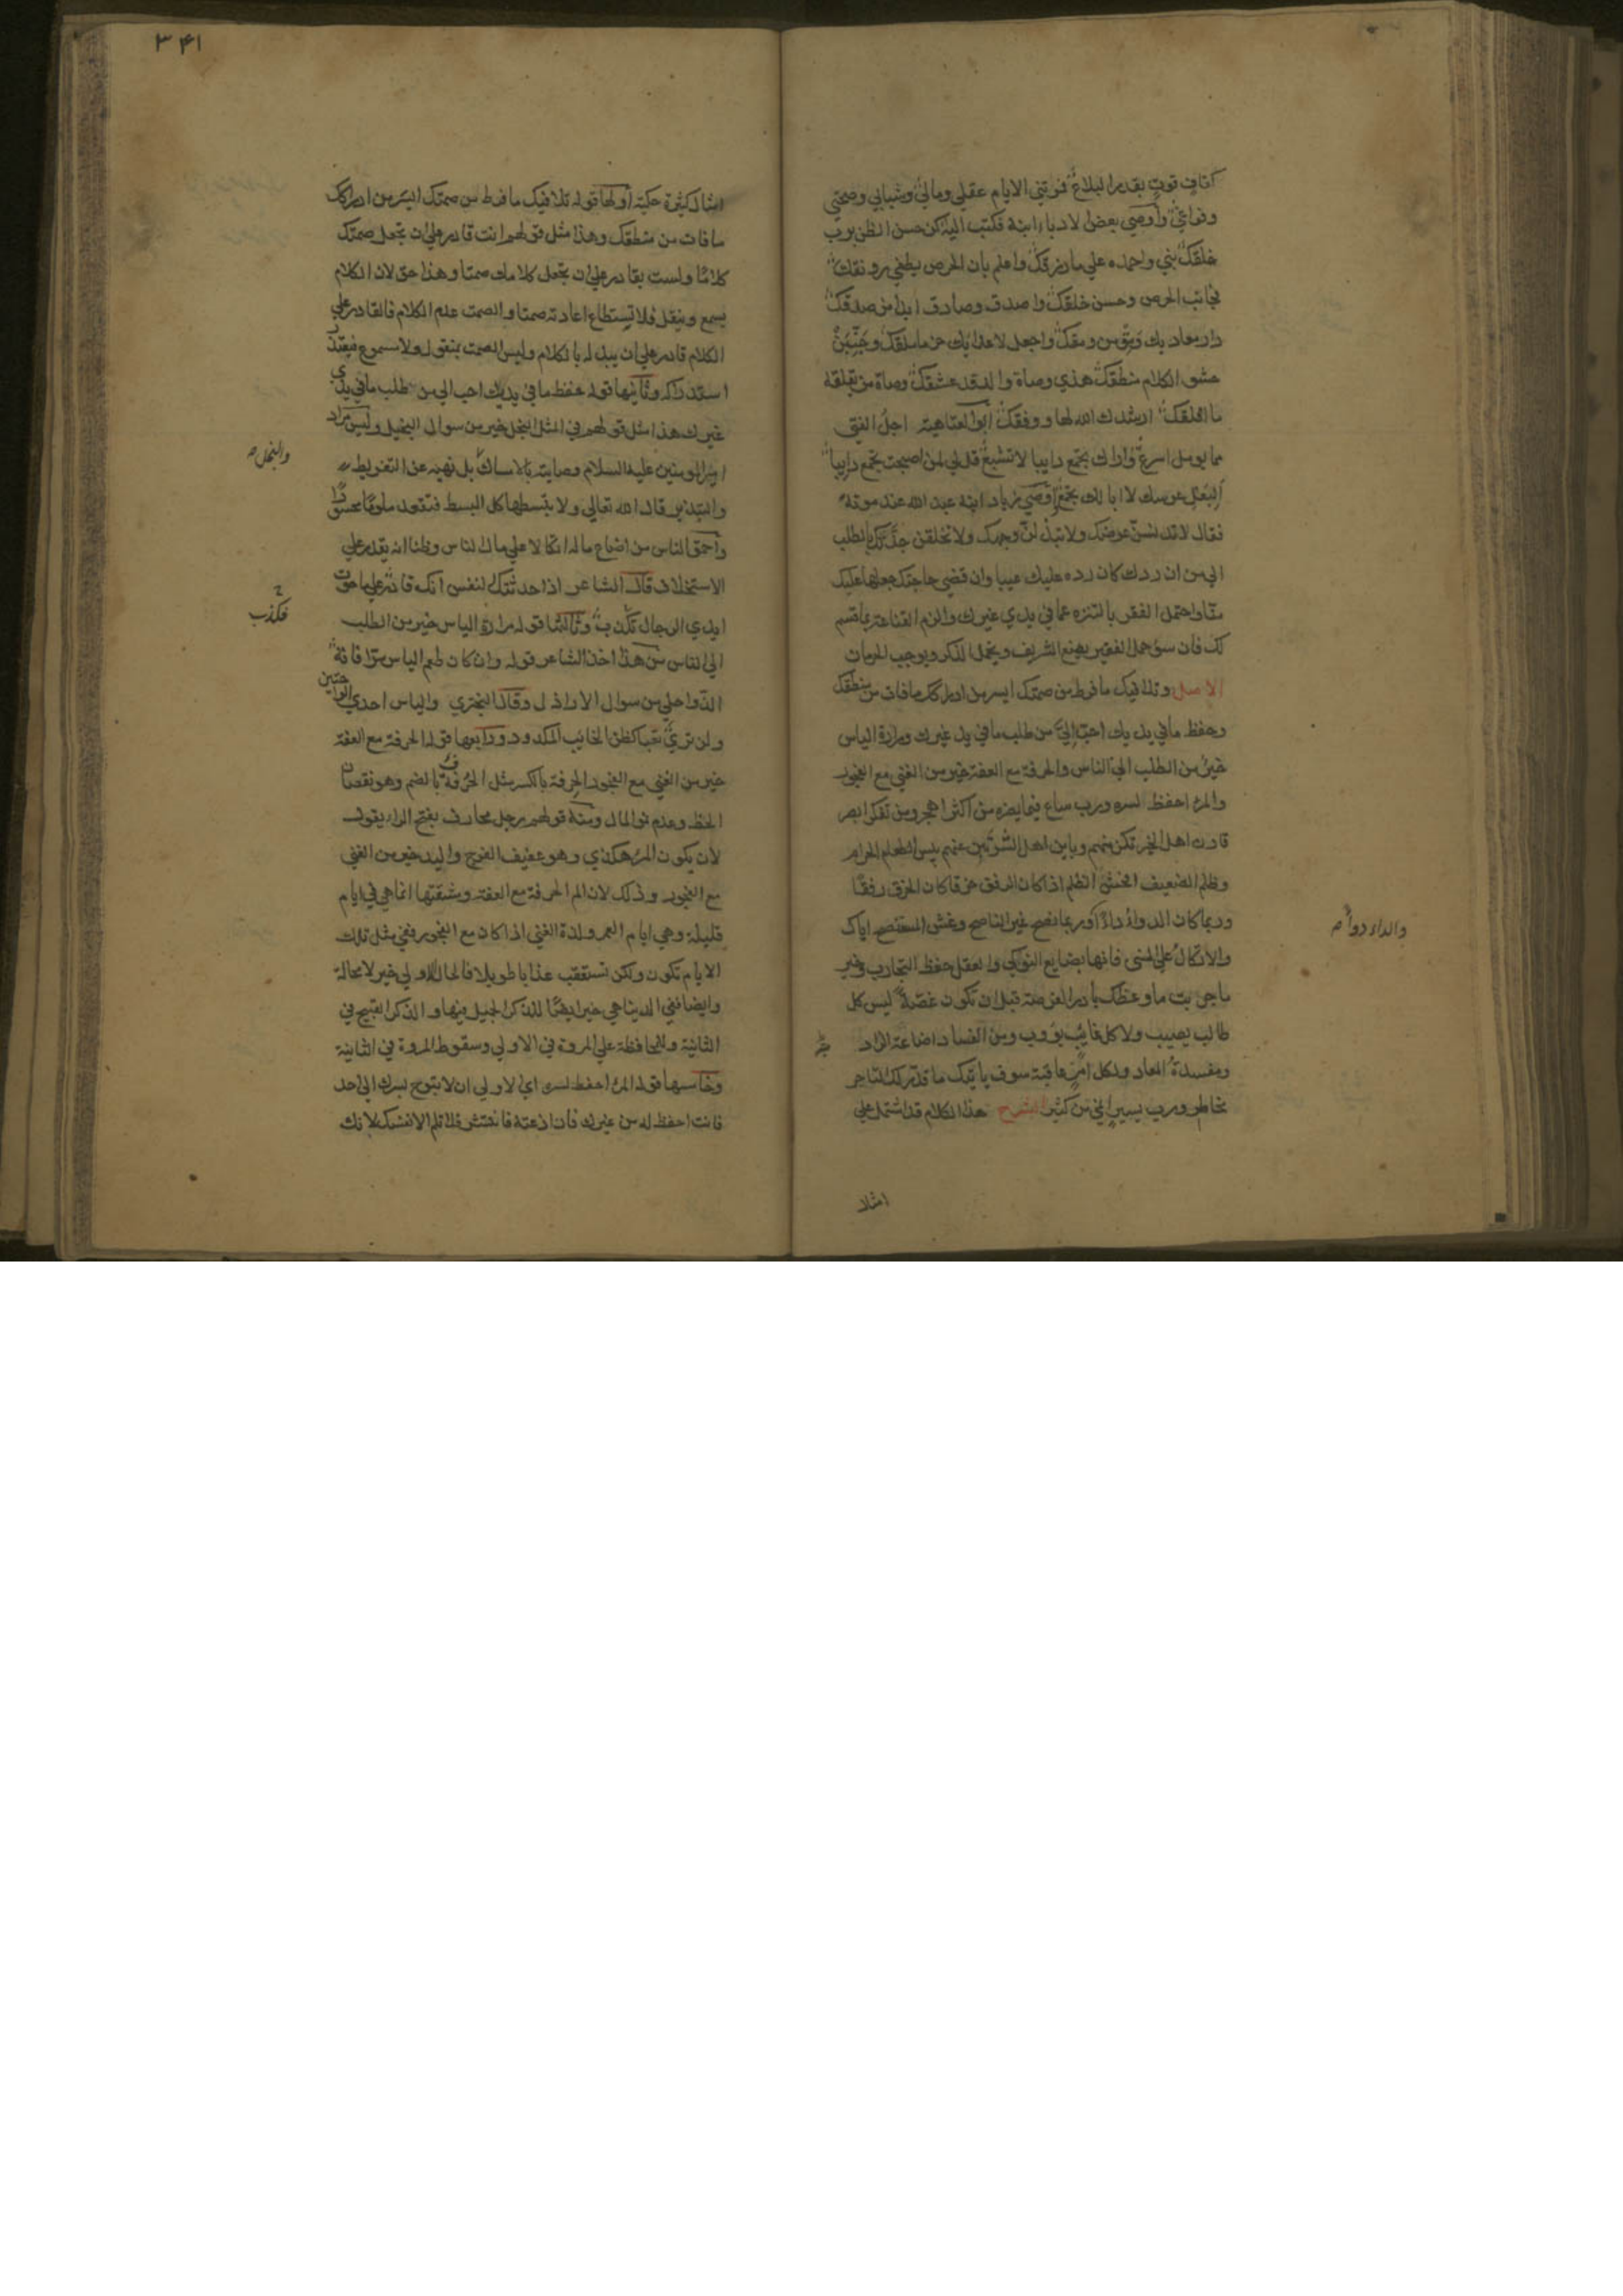 كفاف قوت بقدر البلاغ فوتتني الايام عقلي ومالي وشبابي وصحتي
وفراغي واوصي بعض الادباء ابنه فكتب اليه كن حسن الظن برب
خلقك بني واحمده علي ما رزقك واعلم بان الحرص يطفي رونقك
فجانب الحرص وحسن خلقك واصدق وصادق ابدا من صدقك
دار معاديك ومق من ومقك واجعل لاعدايك حزما ملقك وجنبن
حشو الكلام منطقك هذي وصاة والد قد عشقك وصاة من يقلقه
ما اقلقك ارشدك الله لها ووفقك ابو العتاهية اجل الفتي
مما يومل اسرع واراك تجمع دايبا لا تشبع قل لي لمن اصبحت تجمع دايبا
البعل عرسك لا ابا لك تجمع اوصي زياد ابنه عبد الله عند موته
فقال لا تدنسن عرضك ولا تبذلن وجهك ولا تخلقن جدتك بالطلب
الي من ان ردك كان رده عليك عيبا وان قضي حاجتك جعلها عليك
منا واحتمل الفقر بالتنزه عما في يدي غيرك والزم القناعة بما قسم
لك فان سوء حمل الفقير يضع الشريف ويخمل الذكر ويوجب الحرمان
الاصل وتلافيك ما فرط من صمتك ايسر من ادراكك ما فات من منطقك
وحفظ ما في يديك احب الي من طلب ما في يد غيرك ومرارة الياس
خير من الطلب الي الناس والحرفة مع العفة خير من الغني مع الفجور
والمرء احفظ لسره ورب ساع فيما يضره من اكثر اهجر ومن تفكر ابصر
قارن اهل الخير تكن منهم وباين اهل الشر تبن عنهم بيس الطعام الحرام
وظلم الضعيف افحش الظلم اذا كان الرفق خرقا كان الخرق رفقا
وربما كان الدواء داء وربما نصح غير الناصح وغش المستنصح اياك
والداء دواء صح
والاتكال علي المني فانها بضايع النوكي والعقل حفظ التجارب وخير
ما جربت ما وعظك بادر الفرصة قبل ان تكون غصة ليس كل
طالب يصيب ولا كل غايب يؤوب ومن الفساد اضاعة الزاد
ومفسدة المعاد ولكل امر عاقبة سوف ياتيك ما قدر لك التاجر
مخاطر ورب يسير انمي من كثير الشرح هذا الكلام قد اشتمل علي
امثلا
٣٤١
امثال كثيرة حكمية اولها قوله تلافيك ما فرط من صمتك ايسر من ادراكك
ما فات من منطقك وهذا مثل قولهم انت قادر علي ان تجعل صمتك
كلاما ولست بقادر علي ان تجعل كلامك صمتا وهذا حق لان الكلام
يسمع وينقل فلا يستطاع اعادته صمتا والصمت عدم الكلام فالقادر علي
الكلام قادر علي ان يبدله بالكلام وليس الصمت بمنقول ولا مسموع فيتعذر
استدراكه وثانيها قوله حفظ ما في يديك احب الي من طلب ما في يدي
غيرك هذا مثل قولهم في المثل البخل خير من سوال البخيل وليس مراد
امير المومنين عليه السلام وصايته بالامساك بل نهيه عن التفريط
والبخل صح
والتبذير قال الله تعالي ولا تبسطها كل البسط فتقعد ملوما محسورا
واحمق الناس من اضاع ماله اتكالا علي مال الناس وظنا انه يقدر علي
الاستخلاف قال الشاعر اذا حدثتك النفس انك قادر علي ما حوت
ايدي الرجال تكذب وثالثها قوله مرارة الياس خير من الطلب
فكذب
الي الناس من هذا اخذ الشاعر قوله وان كان طعم الياس مرا فانه
الذ واحلي من سوال الاراذل وقال البحتري والياس احدي الراحتين
ولن تري تعبا كظن الخايب المكدود ورابعها قوله الحرفة مع العفة
خير من الغني مع الفجور الحرفة بالكسر مثل الحرفة بالضم وهو نقصان
الحظ وعدم المال ومنه قولهم رجل محارف بفتح الراء يقول
لان يكون المرء هكذي وهو عفيف الفرج واليد خير من الغني
مع الفجور وذلك لان الم الحرفة مع العفة ومشقتها انما هي في ايام
قليلة وهي ايام العمر ولذة الغني اذا كان مع الفجور ففي مثل تلك
الايام تكون ولكن تستعقب عذابا طويلا فالحال الاولي خير لا محالة
وايضا ففي الدنيا هي خير ايضا للذكر الجميل فيها والذكر القبيح في
الثانية وللمحافظة علي المروة في الاولي وسقوط المروة في الثانية
وخامسها قوله المرء احفظ لسره اي الاولي ان لا تبوح بسرك الي احد
فانت احفظ له من غيرك فان اذعته فانتشر فلا تلم الا نفسك لانك